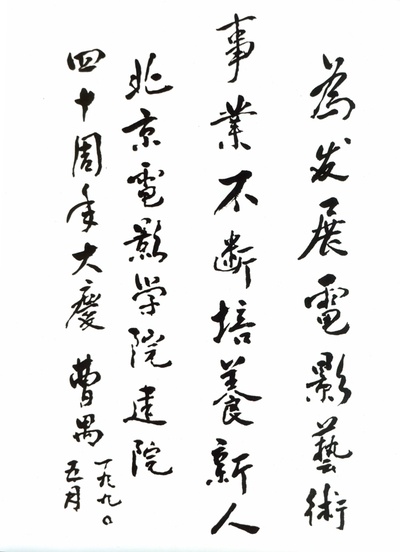 為发展電影藝術
事業不断培养新人
北京電影学院建院
四十周年大慶 曹禺
一九九〇
五月